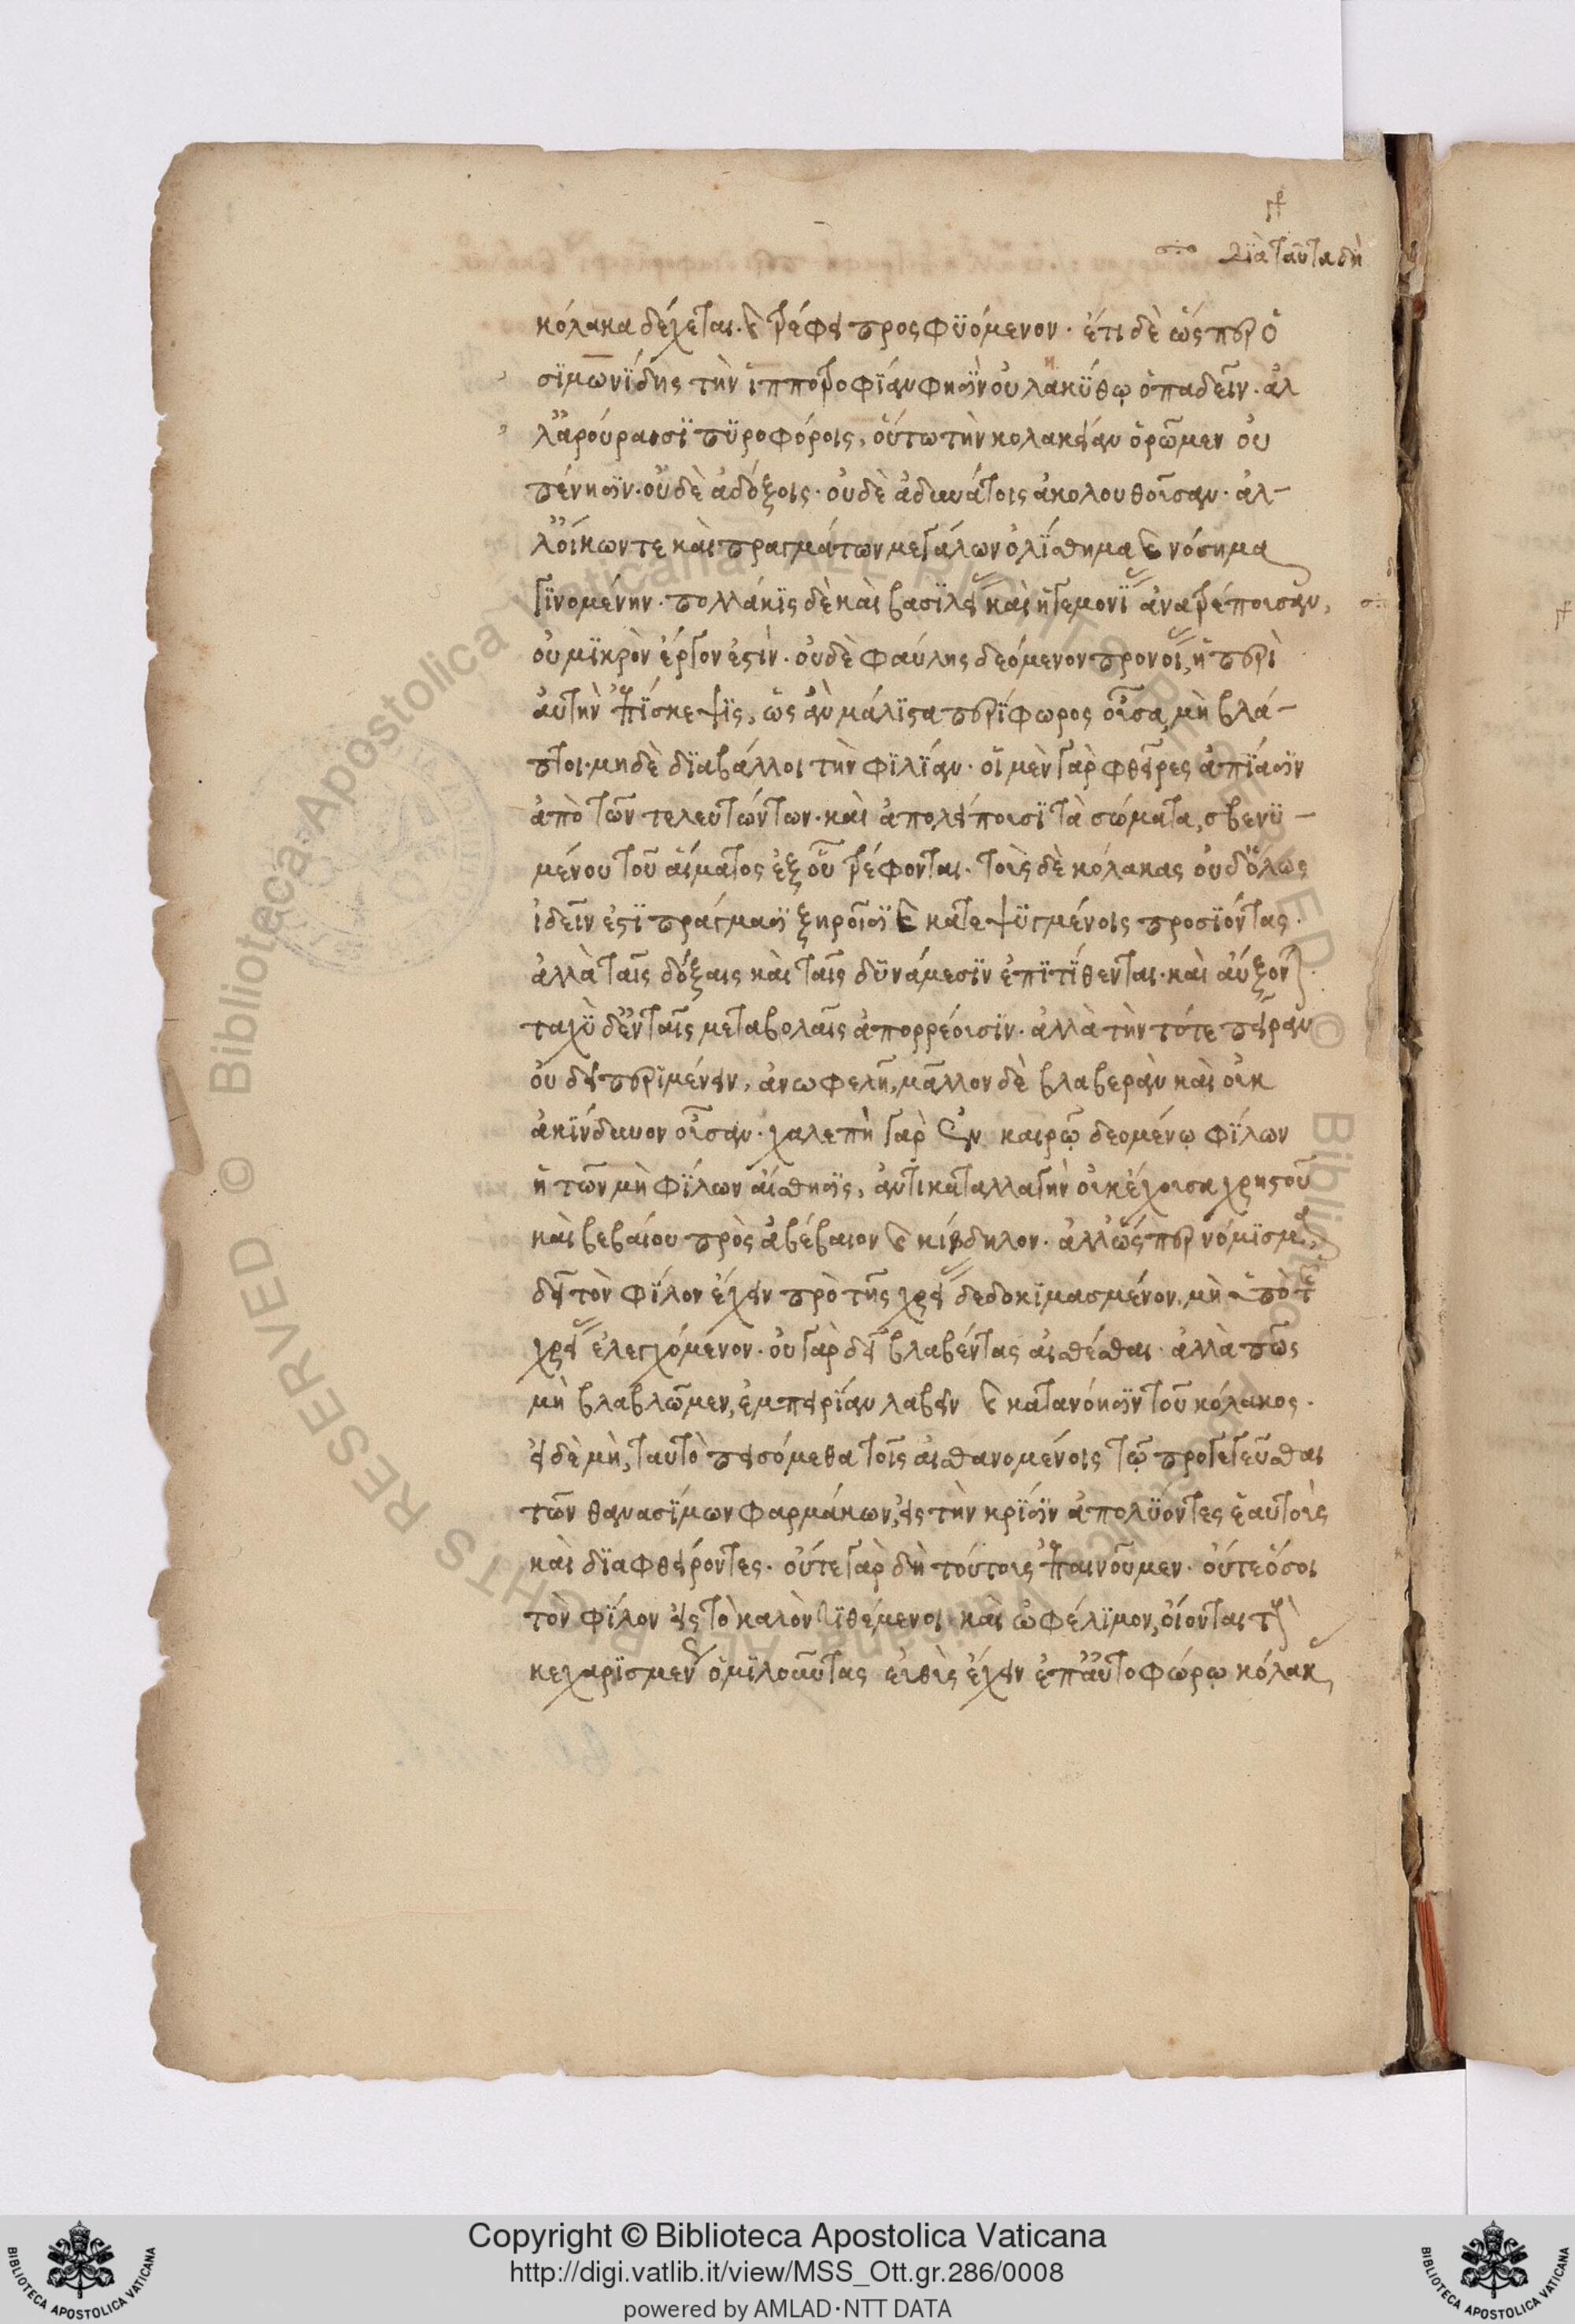 διὰ ταῦτα δὴ
κόλακα δέχεται. καὶ τρέφει προσφυόμενον· ἔτι δὲ ὥσπερ ὁ
σϊμωνΐδης τὴν ἱπποτροφΐαν φησὶν οὐ λακύθῳ ὀπαδεῖν. ἀλ
λ' ἀρούραισϊ πυροφόροις, οὕτω τὴν κολακείαν ὁρῶμεν οὐ
πένησιν. οὐδὲ ἀδόξοις· οὐδὲ ἀδυνάτοις ἀκολουθοῦσαν· ἀλ-
λ' οἴκων τε καὶ πραγμάτων μεγάλων ὀλίσθημα καὶ νόσημα
γϊνομένην· πολλάκϊς δὲ καὶ βασϊλείας καὶ ἡγεμονΐας ἀνατρέπουσαν,
οὐ μϊκρὸν ἔργον ἐστὶν· οὐδὲ φαύλης δεόμενον προνοίας, ἡ περὶ
αὐτὴν ἐπΐσκεψϊς, ὡς ἂν μάλϊστα περΐφωρος οὖσα, μὴ βλά-
πτοι· μηδὲ δϊαβάλλοι τὴν φϊλΐαν· οἱ μὲν γὰρ φθεῖρες ἀπΐασιν
ἀπὸ τῶν τελευτώντων· καὶ ἀπολείπουσϊ τὰ σώματα, σβενϋ-
μένου τοῦ αἵματος ἐξ οὗ τρέφονται. τοὺς δὲ κόλακας οὐδ' ὅλως
ἰδεῖν ἐστϊ πράγμασϊ ξηροῖσϊ καὶ κατεψϋγμένοις προσϊόντας.
ἀλλὰ ταῖς δόξαις καὶ ταῖς δϋνάμεσϊν ἐπϊτΐθενται· καὶ αὔξονται.
ταχϋ δ' ἐν ταῖς μεταβολαῖς ἀπορρέουσϊν· ἀλλὰ τὴν τότε πεῖραν
οὐ δεῖ περϊμένειν, ἀνωφελῆ, μᾶλλον δὲ βλαβερὰν καὶ οὐκ
ἀκΐνδυνον οὖσαν· χαλεπὴ γὰρ ἐν καιρῷ δεομένῳ φΐλων
ἡ τῶν μὴ φΐλων αἴσθησϊς, ἀντικαταλλαγὴν οὐκ ἔχουσα χρηστοῦ
καὶ βεβαίου πρὸς ἀβέβαιον καὶ κίβδηλον· ἀλλ' ὥσπερ νόμϊσμα,
δεῖ τὸν φΐλον ἔχειν πρὸ τῆς χρείας δεδοκϊμασμένον, μὴ ὑπὸ τῆς
χρείας ἐλεγχόμενον· οὐ γὰρ δεῖ βλαβέντας αἰσθέσθαι· ἀλλὰ πῶς
μὴ βλαβῶμεν, ἐμπειρΐαν λαβεῖν καὶ κατανόησϊν τοῦ κόλακος.
εἰ δὲ μὴ, ταὐτὸ πεισόμεθα τοῖς αἰσθανομένοις τῷ προγεγεῦσθαι
τῶν θανασΐμων φαρμάκων, εἰς τὴν κρΐσϊν ἀπολϋοντες ἑαυτοὺς
καὶ δϊαφθείροντες· οὔτε γὰρ δὴ τούτους ἐπαινοῦμεν· οὔτε ὅσοι
τὸν φΐλον εἰς τὸ καλὸν τϊθέμενοι καὶ ὠφέλϊμον, οἴονται τοὺς
κεχαρϊσμένως ὁμϊλοῦντας εὐθὺς ἔχειν ἐπ' αὐτοφώρῳ κόλακας